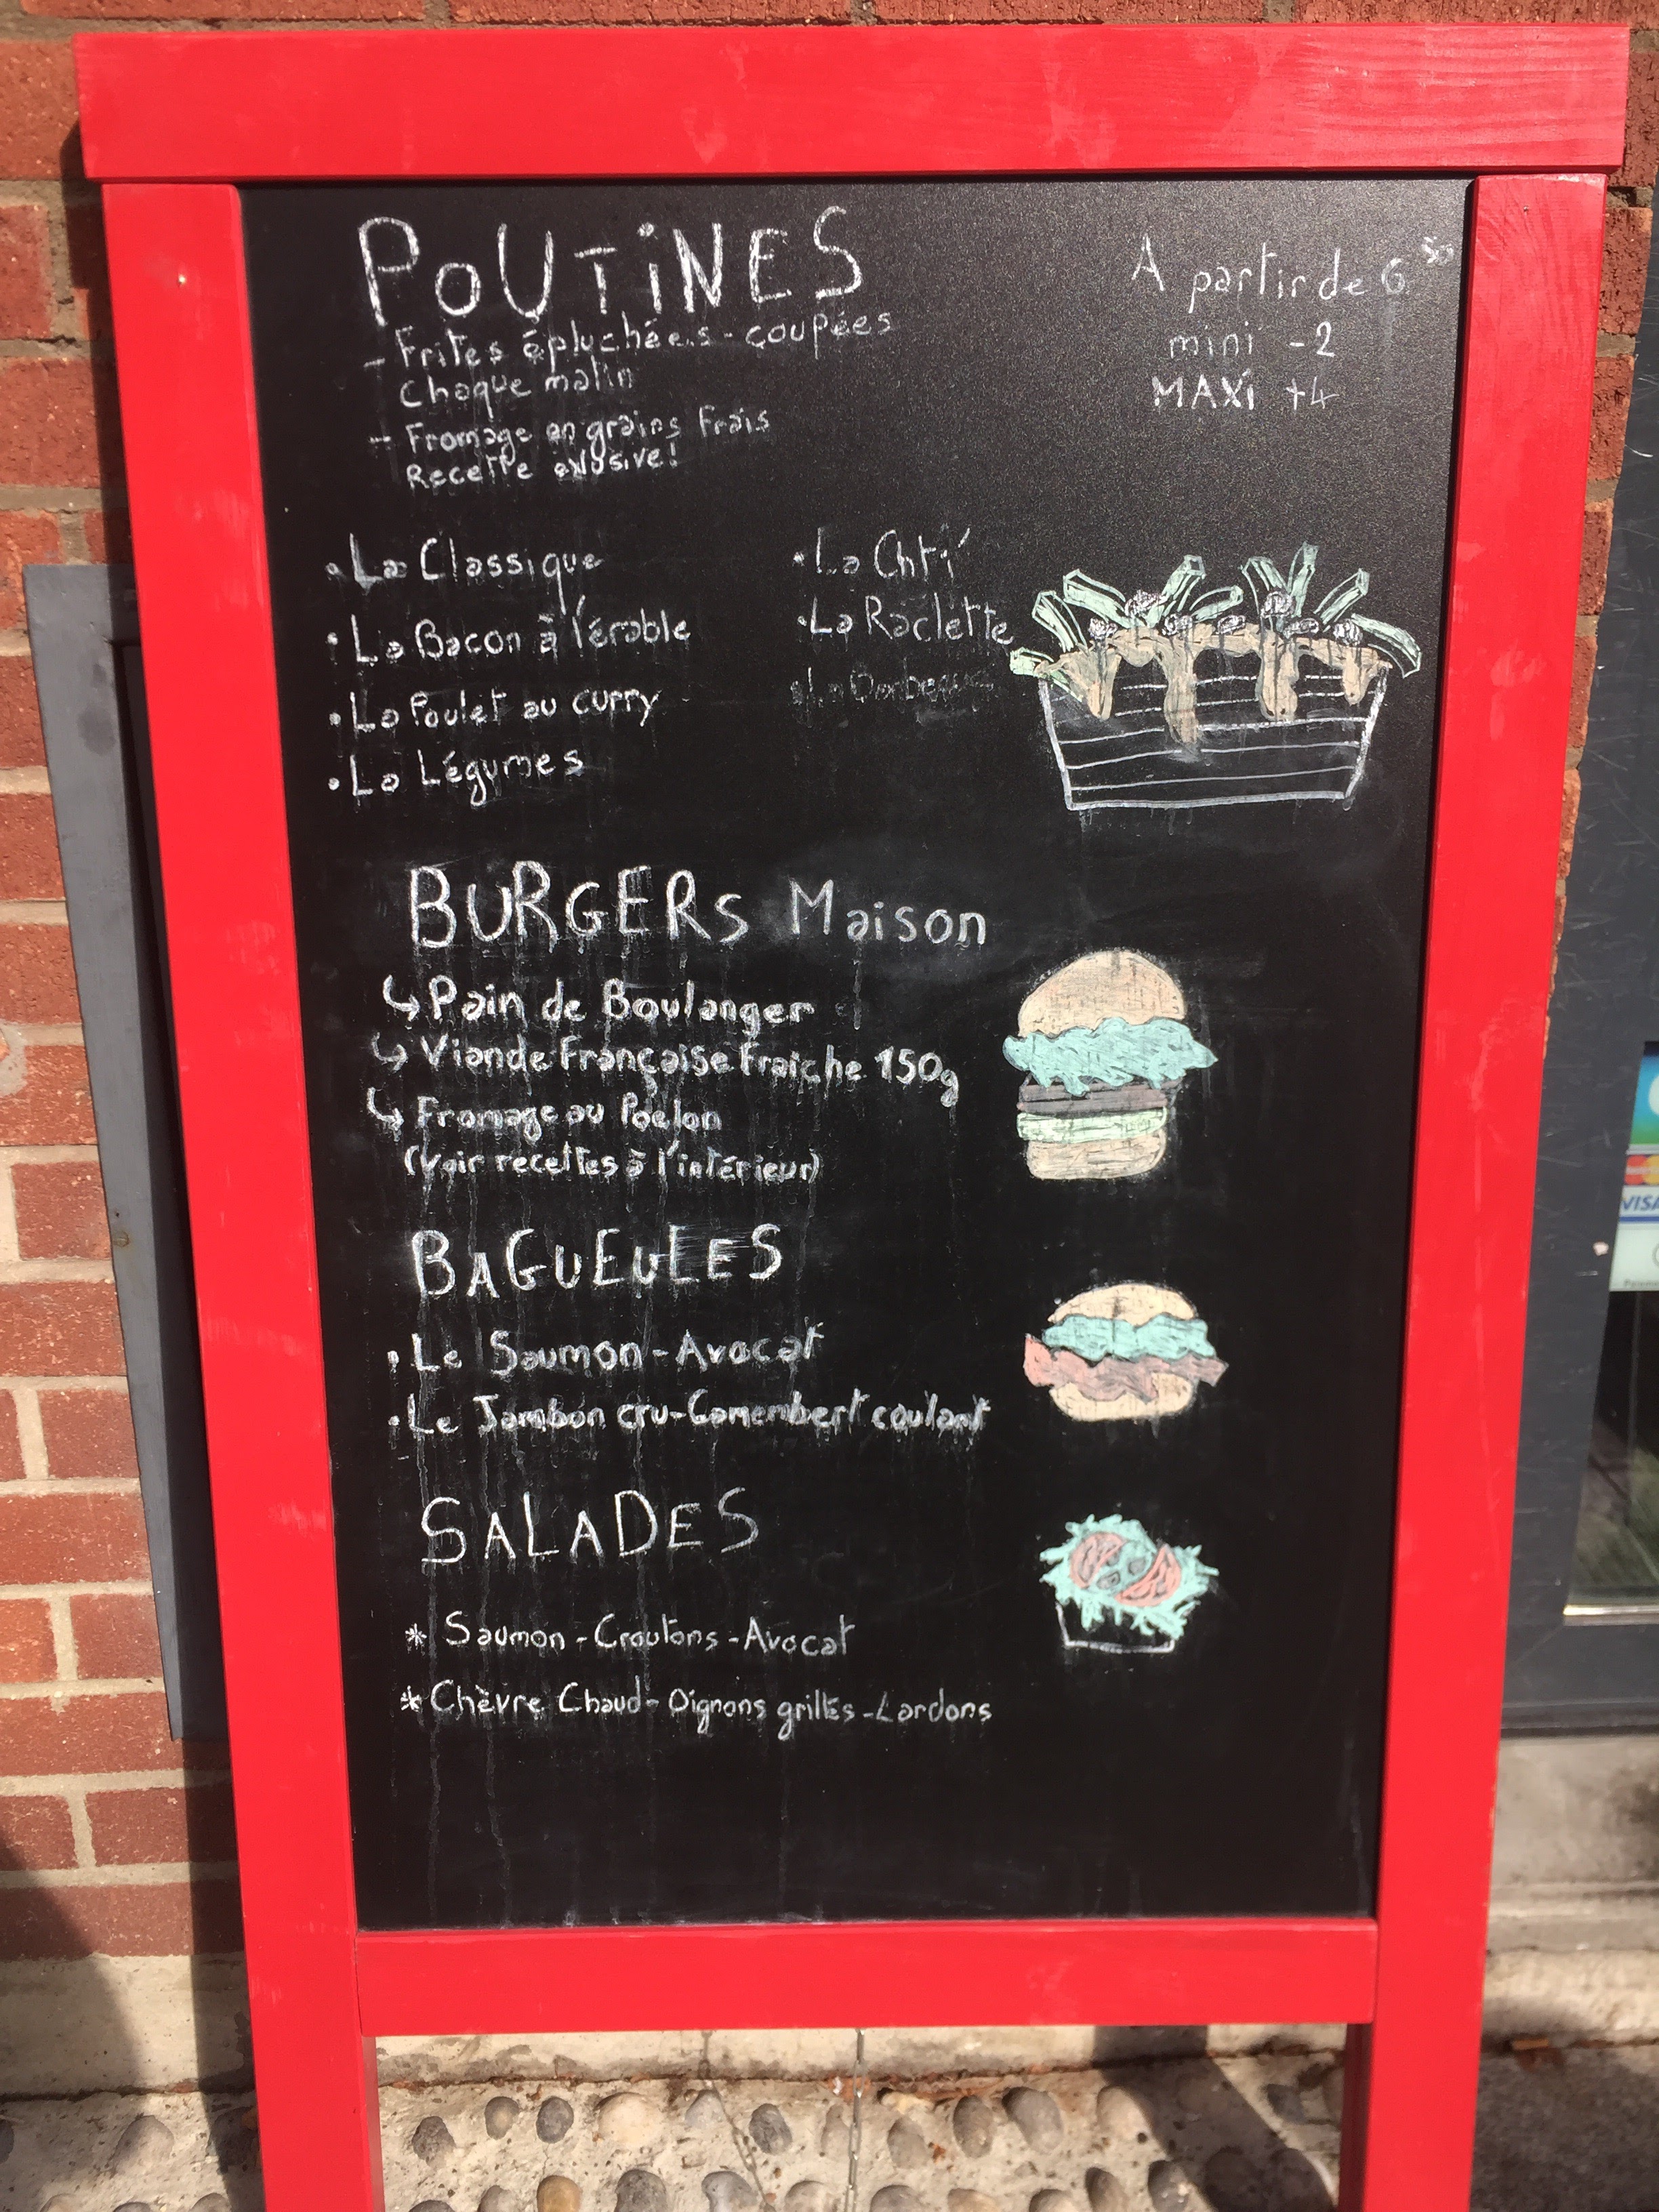 POUTINES
A partir de 6 50
mini -2
MAXi +4
- Frites épluchées - coupées
Chaque matin
- Fromage en grains Frais
Recette exlusive!
• La Classique
• La Bacon à l'érable
• La Poulet au curry
• La Légumes
• La Chti'
• La Raclette
BURGERS Maison
↳ Pain de Boulanger
↳ Viande Française Fraiche 150g
↳ Fromage au Poelon
(Voir recettes à l'intérieur)
BAGUEULES
• Le Saumon - Avocat
• Le Jambon cru-Camembert coulant
SALADES
* Saumon - Croutons - Avocat
* Chèvre Chaud - Oignons grillés - Lardons
VISA